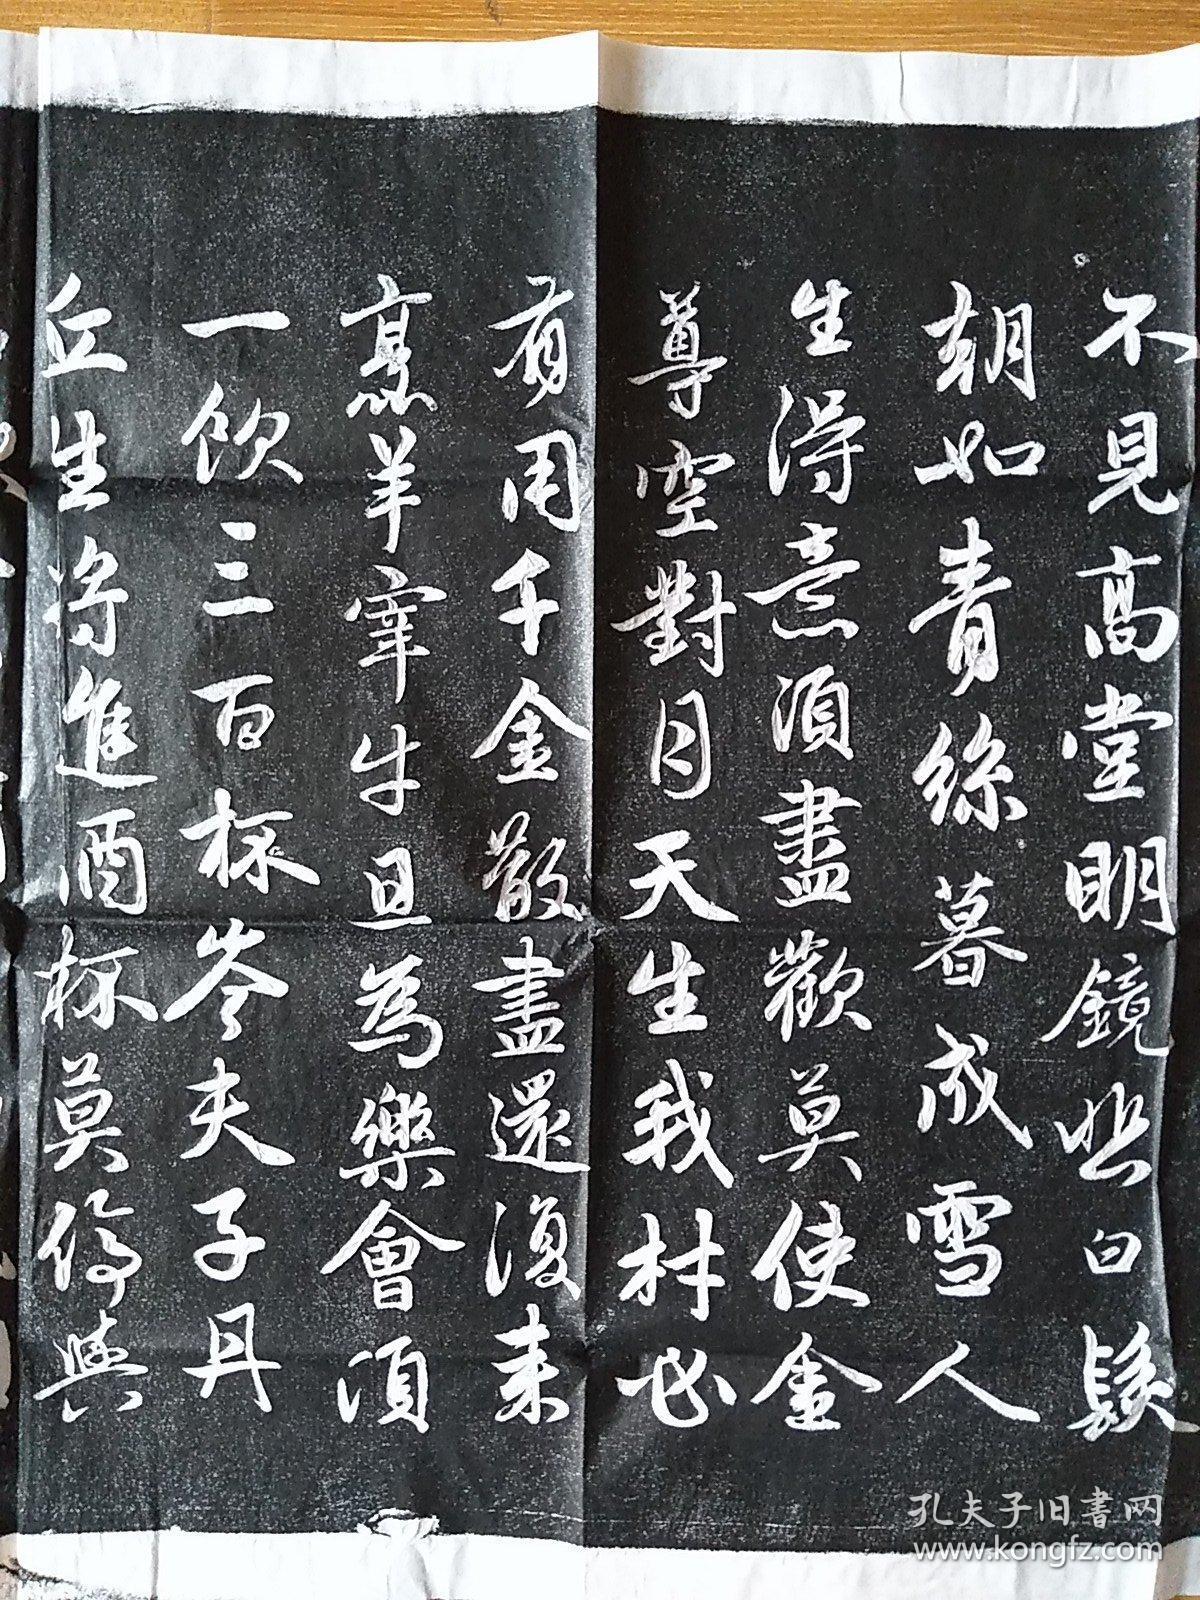 不見高堂明鏡悲白髮
朝如青絲暮成雪人
生得意須盡歡莫使金
尊空對月天生我材必
有用千金散盡還復來
烹羊宰牛且為樂會須
一飲三百杯岑夫子丹
丘生將進酒杯莫停與
孔夫子旧書网
www.kongfz.com